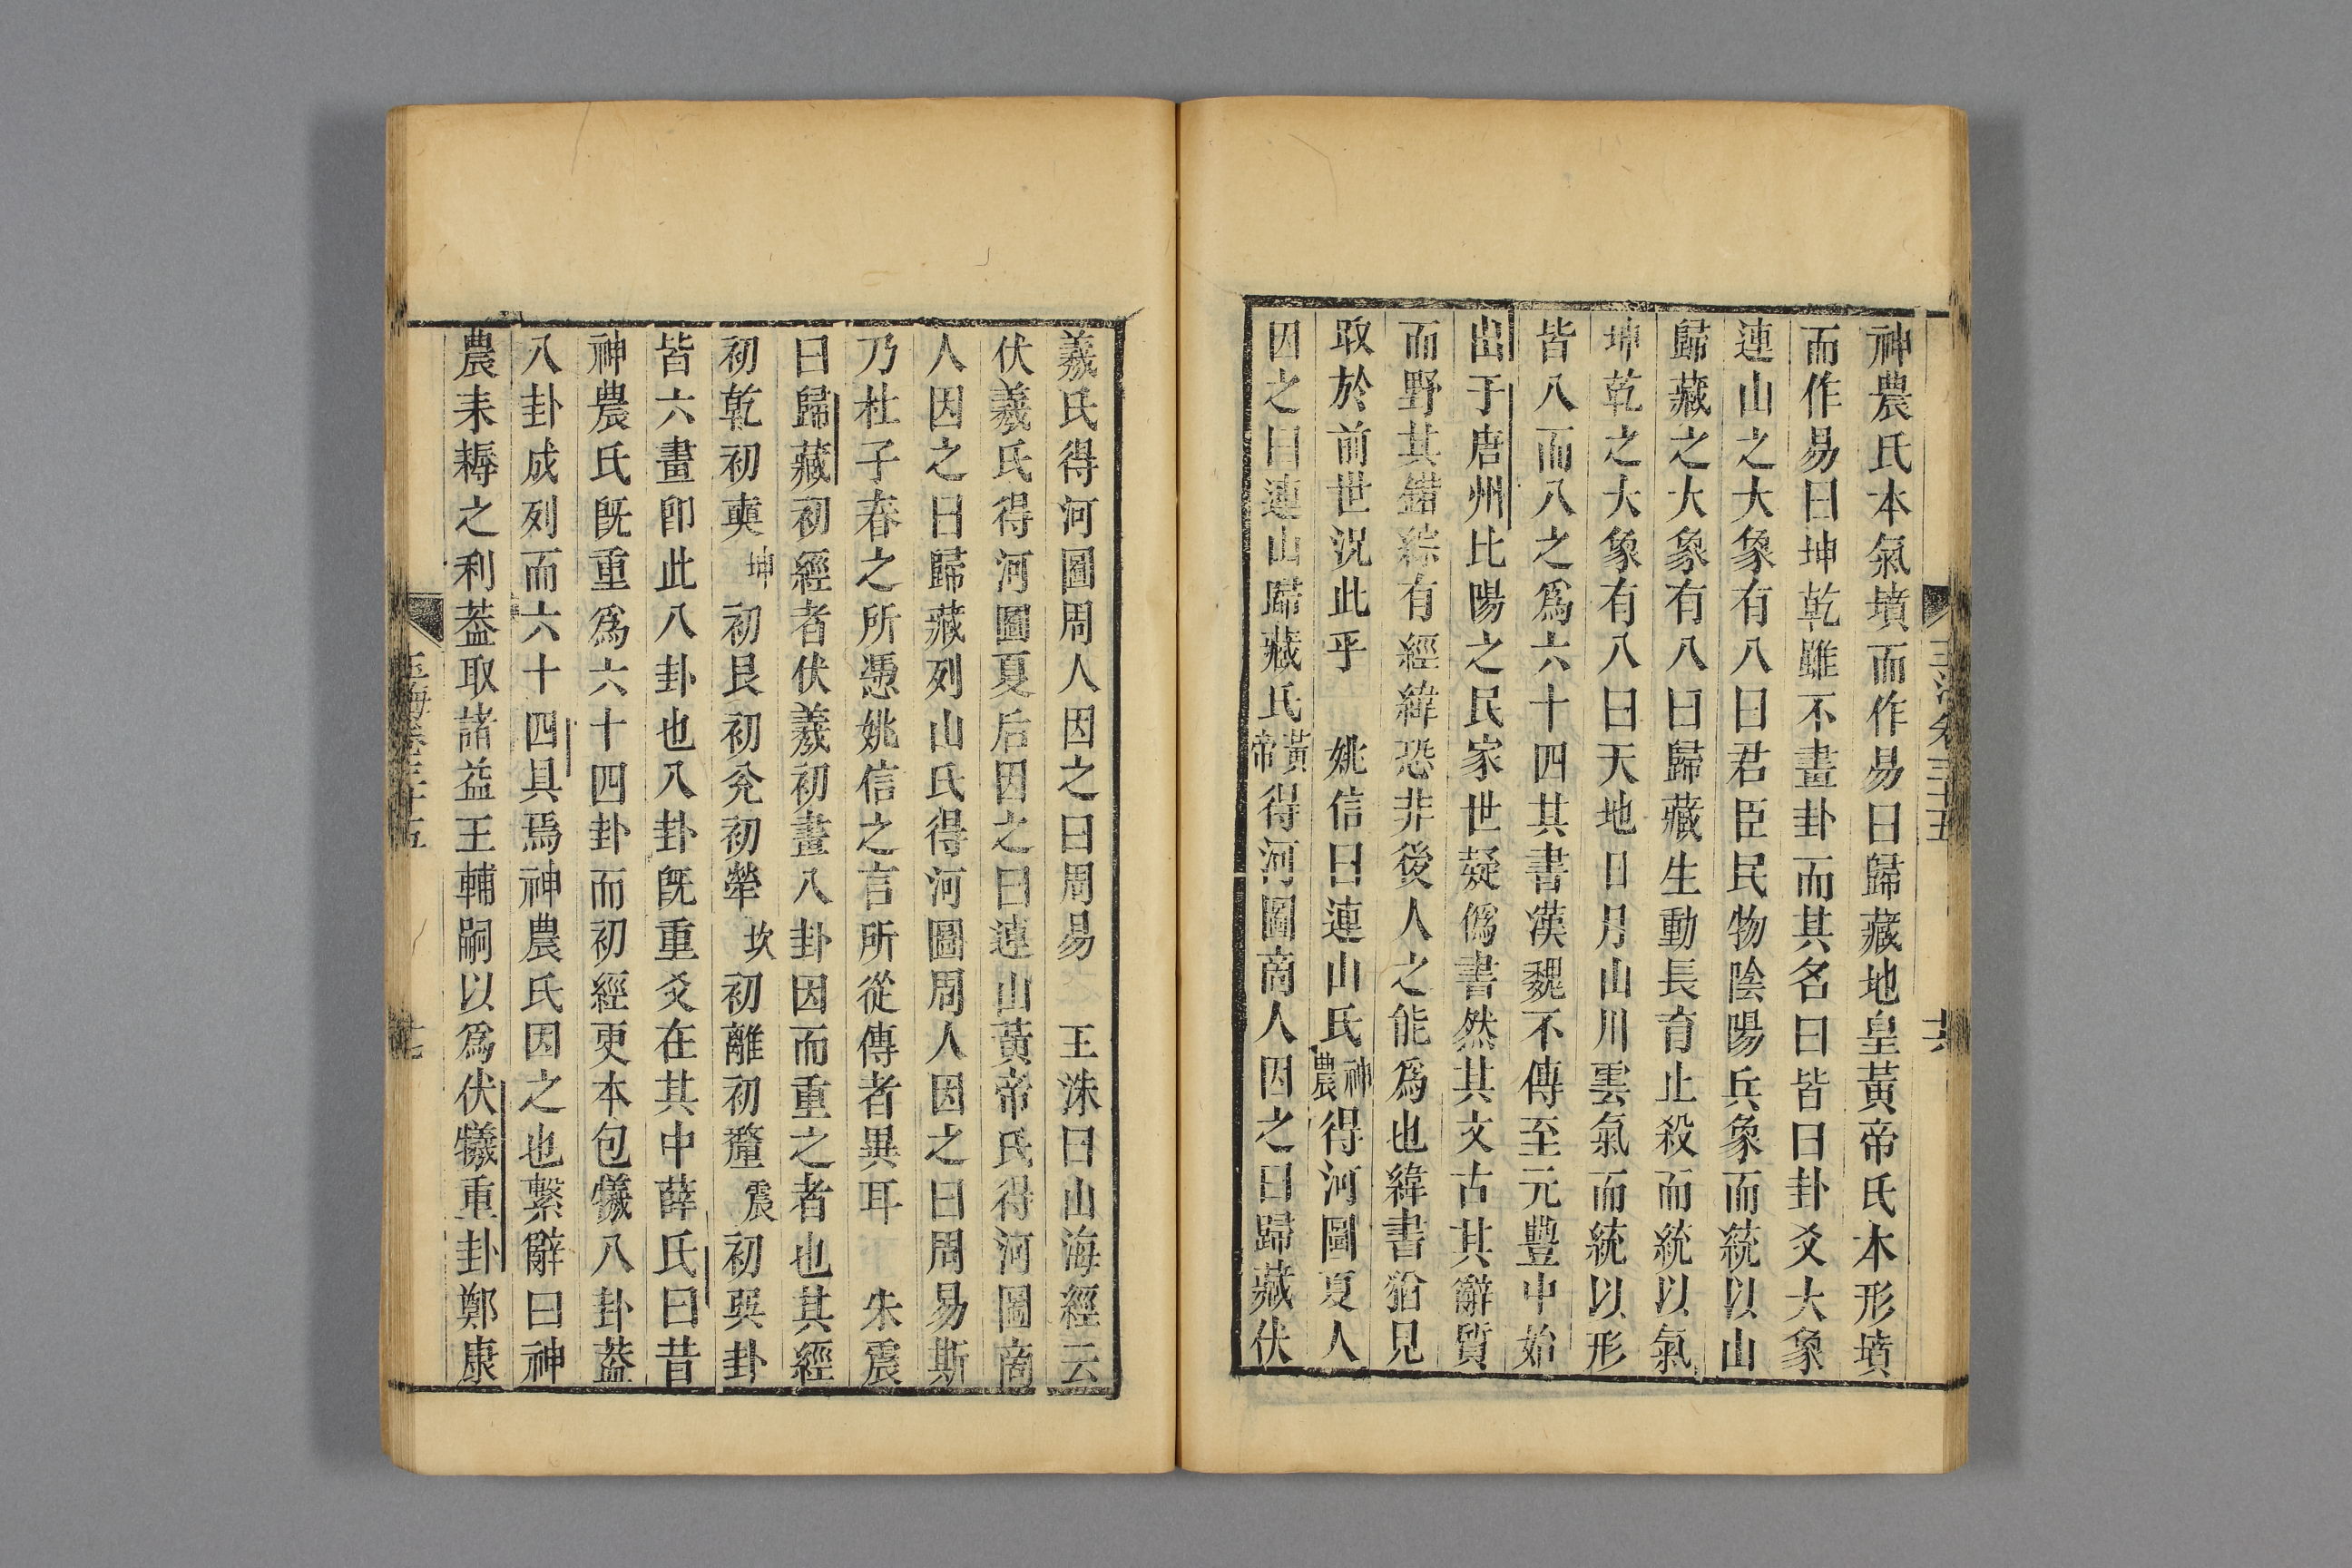 玉海卷三十五
神農氏本氣墳而作易曰歸藏地皇黃帝氏本形墳
而作易曰坤乾雖不畫卦而其名曰皆曰卦爻大象
連山之大象有八曰君臣民物陰陽兵象而統以山
歸藏之大象有八曰歸藏生動長育止殺而統以氣
坤乾之大象有八曰天地日月山川雲氣而統以形
皆八而八之爲六十四其書漢魏不傳至元豐中始
出于唐州比陽之民家世疑僞書然其文古其辭質
而野其錯綜有經緯恐非後人之能爲也緯書猶見
取於前世況此乎 姚信曰連山氏神農得河圖夏人
因之曰連山歸藏氏黃帝得河圖商人因之曰歸藏伏
羲氏得河圖周人因之曰周易 王洙曰山海經云
伏羲氏得河圖夏后因之曰連山黃帝氏得河圖商
人因之曰歸藏列山氏得河圖周人因之曰周易斯
乃杜子春之所憑姚信之言所從傳者異耳 朱震
曰歸藏初經者伏羲初畫八卦因而重之者也其經
初乾初奭坤初艮初兊初犖坎初離初釐震初巽卦
皆六畫卽此八卦也八卦旣重爻在其中薛氏曰昔
神農氏旣重爲六十四卦而初經更本包犧八卦葢
八卦成列而六十四具焉神農氏因之也繫辭曰神
農耒耨之利葢取諸益王輔嗣以爲伏犧重卦鄭康
玉海卷三十五